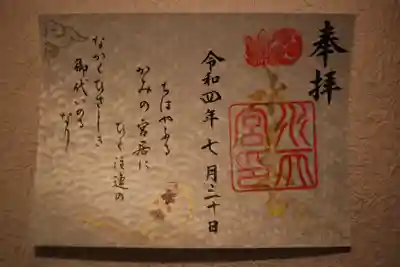 奉拝
令和四年七月三十日
ちはやふる
かみの宮居に
ひく注連の
なかくひさしき
御代いのる
なり